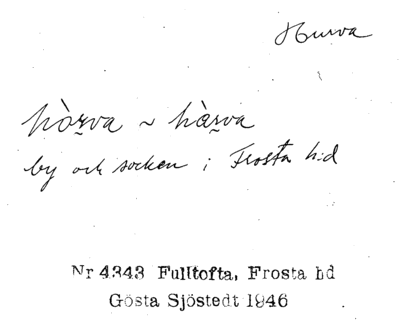 Hurva
hòr̰va ~ hàr̰va
by och socken i Frosta h:d
Nr 4343 Fulltofta, Frosta hd
Gösta Sjöstedt 1946